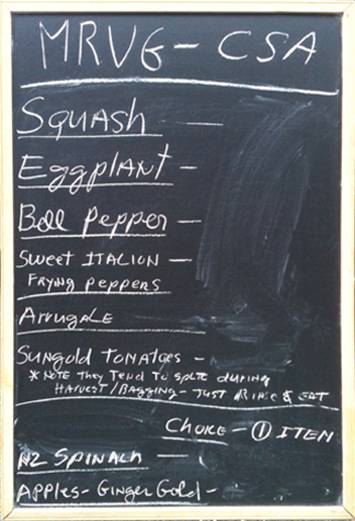 MRVG - CSA
Squash —
Eggplant -
Bell Pepper —
Sweet Italion —
Frying Peppers
Arugale
Sungold Tomatoes -
* Note they tend to split during
Harvest/Bagging - Just Rinse & Eat
Choice - ① Item
NZ Spinach —
Apples - Ginger Gold -